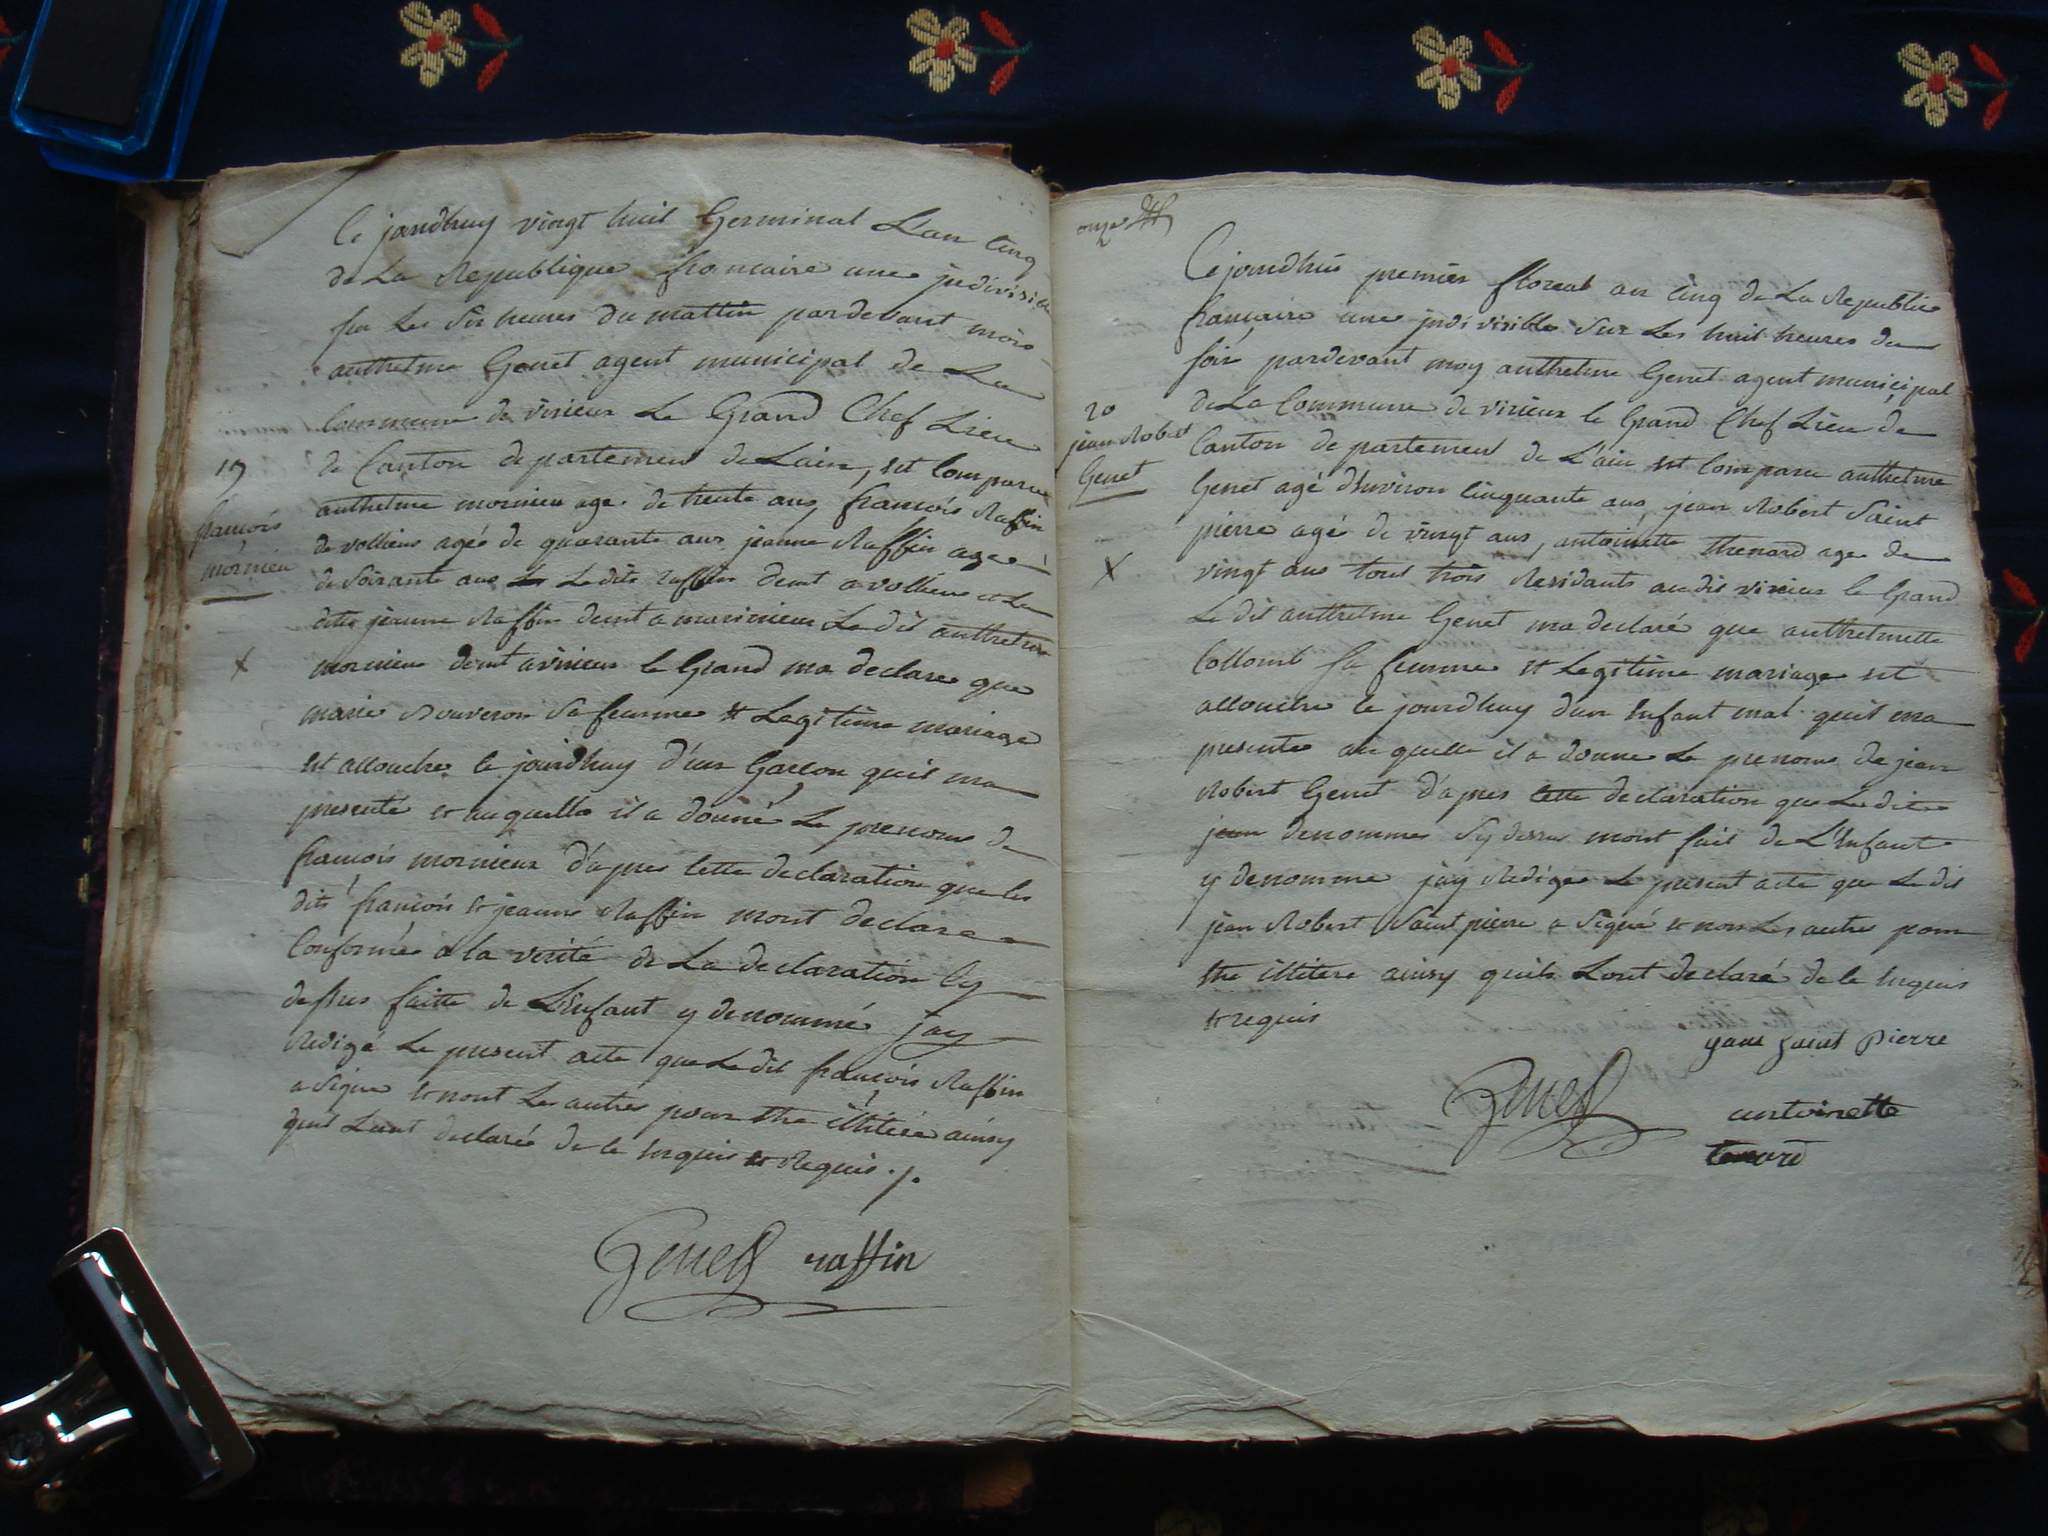 Ce jourdhuy vingt huit Germinal Lan cinq
de La Republique francaise une jndivisible
sur Les six heures du mattin pardevant mois
anthelme Genet agent municipal de La
Commune de virieux Le Grand Chef Lieu
de Canton departement de Lain, est Comparu
19
anthelme mornieu age de trente ans francois Raffin
françois
mornieu
de vollien agé de quarante ans jeanne Raffin age
de Soixante ans Le dits raffin demt a vollien et La
ditte jeanne Raffin demt a marinieu Le dit anthelme
X
mornieu demt a virieux le Grand ma declare que
marie Bouveron Sa femme et Legitime mariage
est accouche ce jourdhuy d'un Garcon quil ma
presenté et auquelle il a donné Le prenoms de
françois mornieux d'apres cette declaration que les
dits francois et jeanne Raffin mont declare
Conforme a la verité de La declaration cy
dessus faitte de L'Enfant y denommé jay
Redigé Le present acte que Le dit françois Raffin
a Signe et nont Les autres pour Etre illitéré ainsy
quil Lont declaré de ce Enquis et Requis ./.
Genet raffin
onze
Cejourdhui premier floreal an cinq de La Republice
francaire une jndivisible Sur Les huit heures du
soir pardevant moy anthelme Genet agent municipal
20
jean Robert
Genet
de La Commune de virieux le Grand Chef Lieu de
Canton departement de L'ain est Comparu anthelme
Genet agé d'Environ Cinquante ans, jean Robert Saint
pierre agé de vingt ans, antoinette thenard age de
X
vingt ans tout trois Residants audit virieux le Grand
Le dit anthelme Genet ma declaré que anthelmette
Collomb sa femme et Legitime mariage est
accouche ce jourdhuy d'un Enfant mal quil ma
presente auquelle il a donne Le prenoms de jean
Robert Genet d'apres cette declaration que Le dit
jean denommes Sy dessus mont fait de L'Enfant
y denomme jay Redige Le present acte que Le dit
jean Robert Saint pierre a Signé et non Les autre pour
Etre illitere ainsy quils Lont declaré de ce Enquis
et requis
jean saint pierre
Genet antoinette
tenard